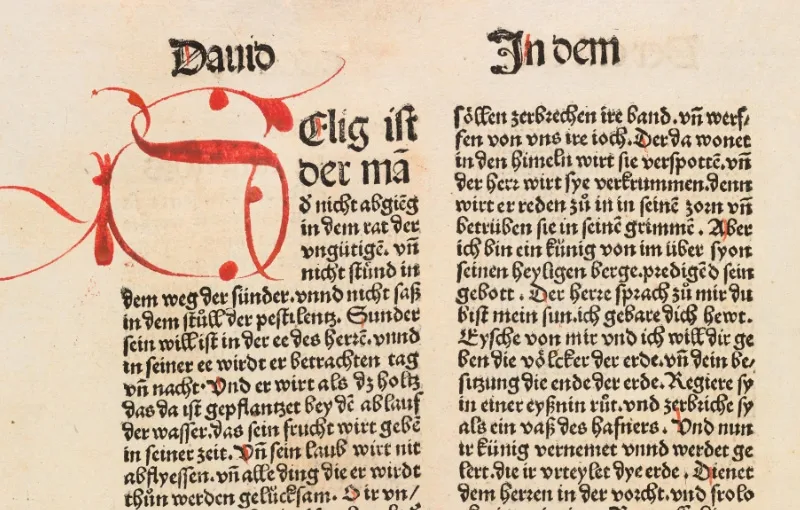 Dauid
In dem
SElig ist
der mā
ď nicht abgiēg
in dem rat der
vngütigē. vñ
nicht stūnd in
dem weg der sünder. vnnd nicht saß
in dem stůll der pestilentz. Sunder
sein will ist in der ee des herrē. vnnd
in seiner ee wirdt er betrachten tag
vñ nacht. Vnd er wirt als dz holtz
das da ist gepflantzet bey dē ablauf
der wasser. das sein frucht wirt gebē
in seiner zeit. Vñ sein laub wirt nit
abflyessen. vñ alle ding die er wirdt
thůn werden gelücksam. O ir vn/
söllen zerbrechen ire band. vñ werf/
fen von vns ire ioch. Der da wonet
in den himeln wirt sie verspottē. vñ
der herr wirt sye verkrummen. denn
wirt er reden zů in in seinē zorn vñ
betrüben sie in seinē grimmē. Aber
ich bin ein künig von im über syon
seinen heyligen berge. predigēd sein
gebott. Der herre sprach zů mir du
bist mein sun. ich gebare dich hewt.
Eysche von mir vnd ich will dir ge
ben die völcker der erde. vñ dein be/
sitzung die ende der erde. Regiere sy
in einer eyßnin růt. vnd zerbriche sy
als ein vaß des hafners. Vnd nun
ir künig vernemet vnnd werdet ge
lert. die ir vrteylet dye erde. Dienet
dem herren in der vorcht. vnd frolo